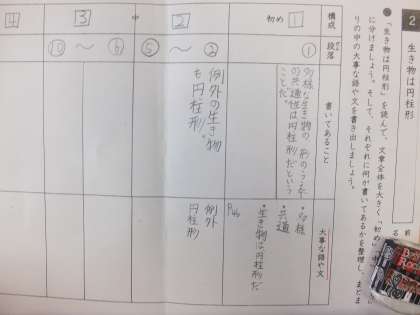 2
生き物は円柱形
「生き物は円柱形」を読んで、文章全体を大きく「初め」
に分けましょう。そして、それぞれに何が書いてあるかを整理し、まとま
りの中の大事な語や文を書き出しましょう。
構成
段落
書いてあること
大事な語や文
初め
1
①
多様な生き物の形のうち
の共通性は円柱形だという
ことだ。
・多様
・共通
・生き物は円柱形だ
中
2
②〜⑤
例外の生き物
も円柱形。
例外
円柱形
3
⑥〜⑩
4